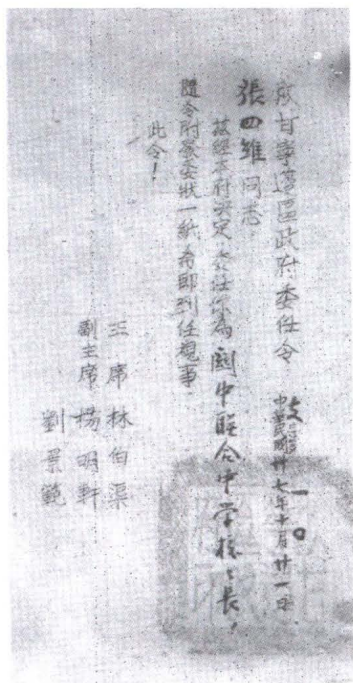 陝甘寧邊區政府委任令
中華民國卅七年十一月廿一日
張四維同志
茲經本府決定委任你為關中聯合中學校校長,
隨令附發委狀一紙,希即到任視事
此令!
主席 林伯渠
副主席 楊明軒
劉景範